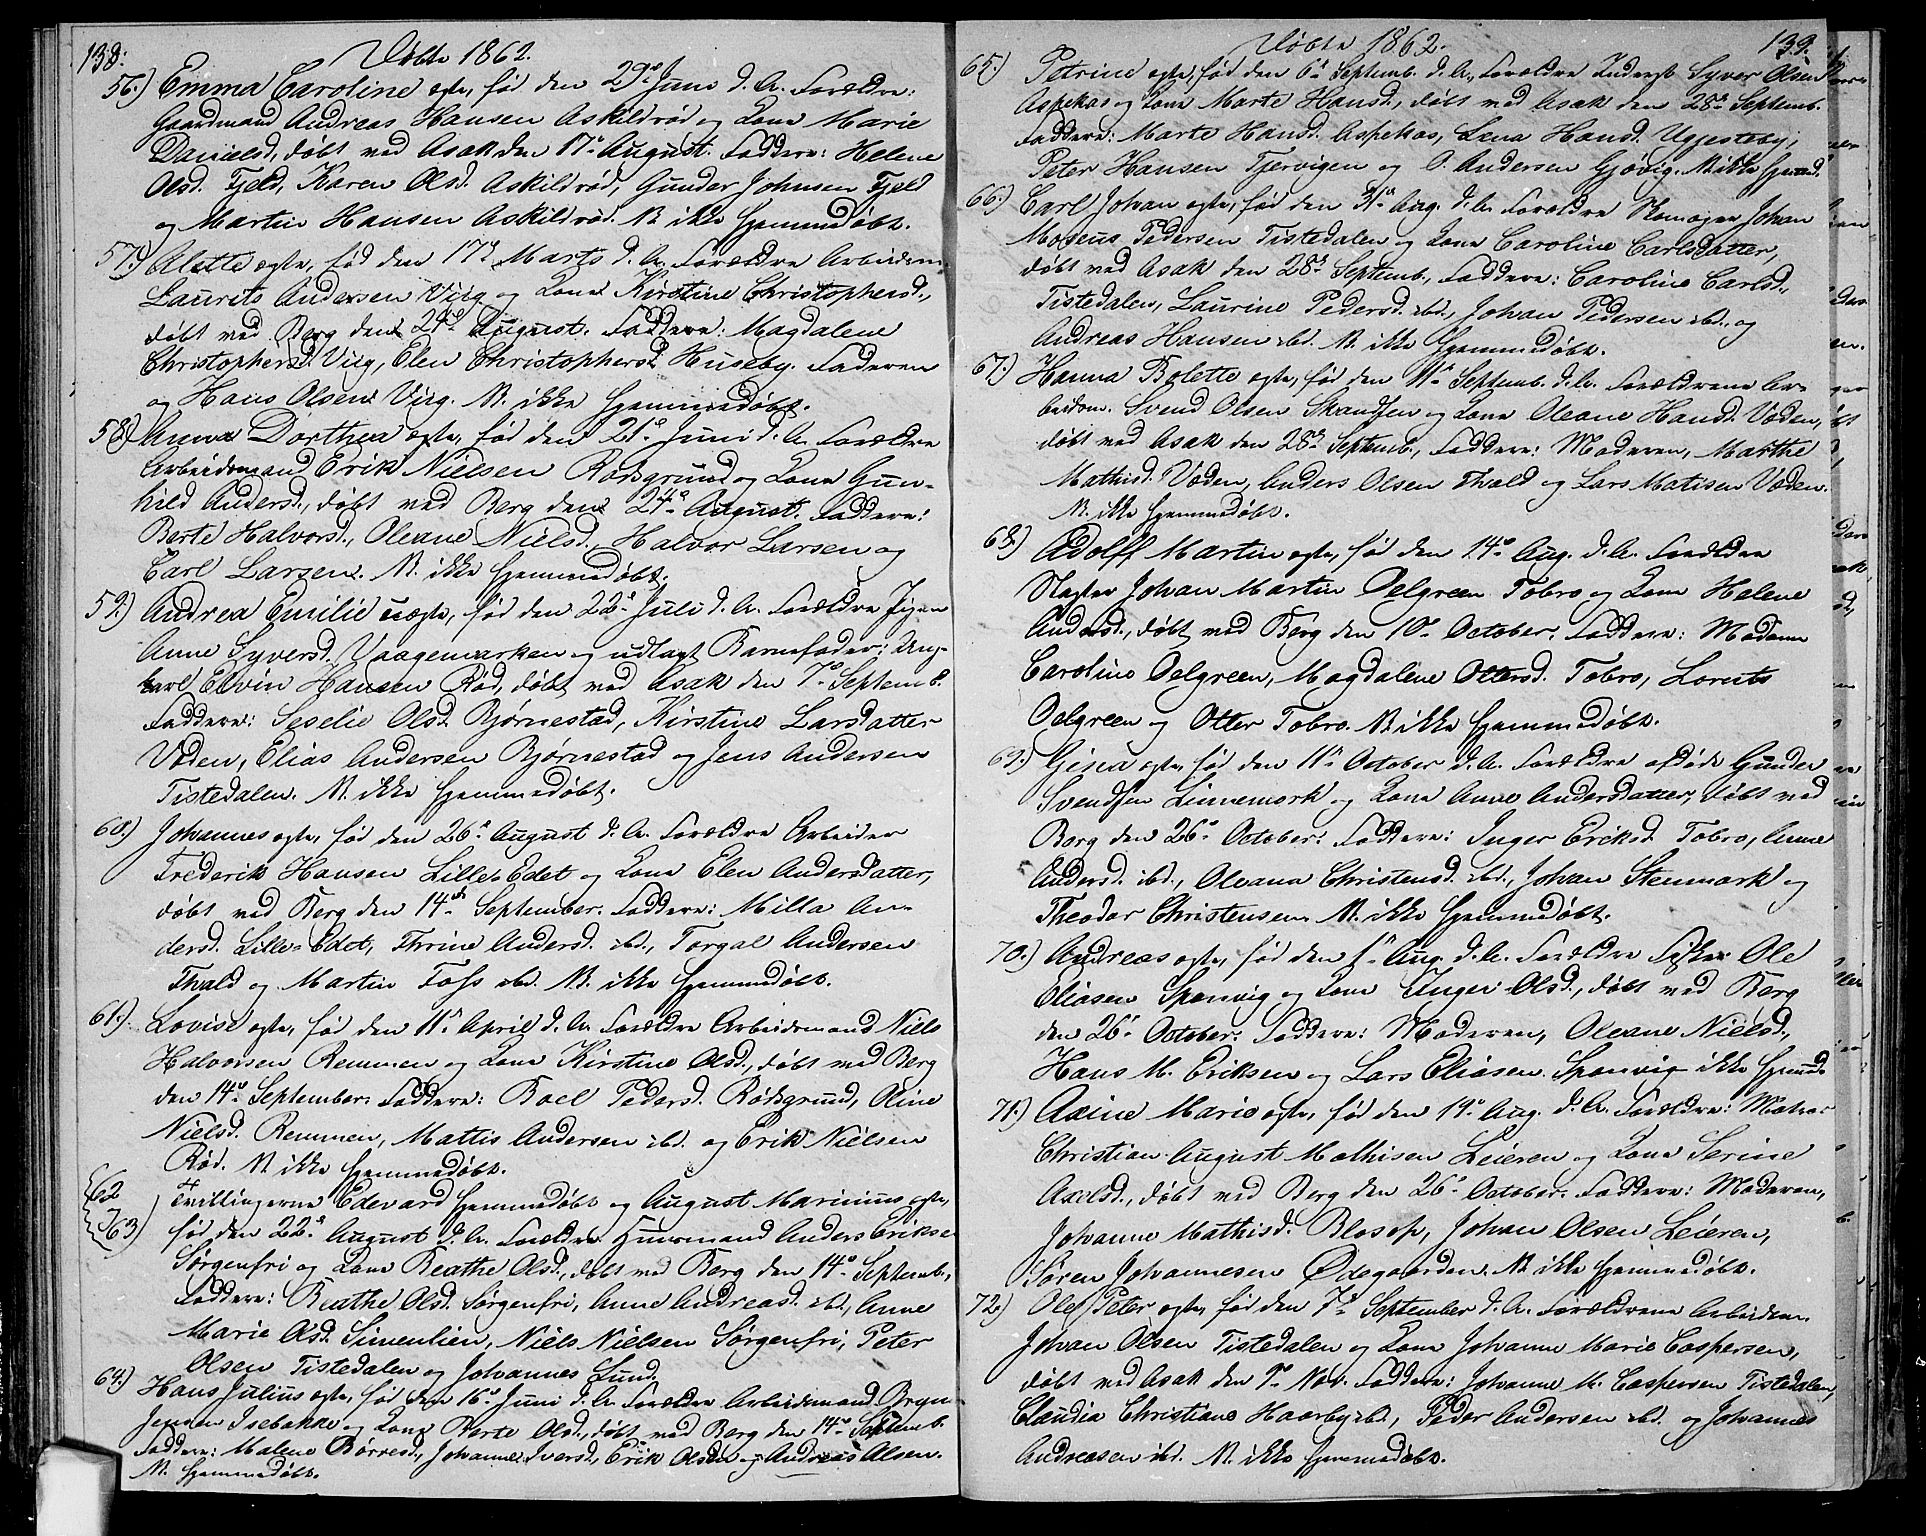 138.
Døbte 1862.
56.) Emma Caroline ægte, fød den 29de Juni d. A. Forældre:
Gaardmand Andreas Hansen Askildrød og Kone Marie
Danielsd., døbt ved Asak den 17de August. Faddere: Helene
Olsd. Fjeld, Karen Olsd. Askildrød, Gunder Johnsen Fjeld
og Martin Hansen Askildrød. N. ikke hjemmedøbt.
57.) Alette ægte, fød den 17de Marts d. A. Forældre Arbeidsm.
Laurits Andersen Viig og Kone Kirstine Christophersd.,
døbt ved Berg den 24de August. Faddere: Magdalene
Christophersd. Viig, Elen Christophersd. Huseby. Faderen
og Hans Olsen Viig. N. ikke hjemmedøbt.
58.) Anna Dorthea ægte, fød den 21de Juni d. A. Forældre
Arbeidsmand Erik Nielsen Rødsgrund og Kone Gun-
hild Andersd., døbt ved Berg den 24de August. Faddere:
Berte Halvorsd., Oleane Nielsd., Halvor Larsen og
Carl Larsen. N. ikke hjemmedøbt.
59.) Andrea Emilie uægte, fød den 22de Juli d. A. Forældre Pigen
Anne Syversd. Vaagemarken og udlagt Barnefader: Ung-
karl Edvin Hansen Rød, døbt ved Asak den 7de Septemb.
Faddere: Seselie Olsd. Bjørnestad, Kirstine Larsdatter
Veden, Elias Andersen Bjørnestad og Jens Andersen
Tistedalen. N. ikke hjemmedøbt.
60.) Johannes ægte, fød den 26de August d. A. Forældre Arbeider
Frederik Hansen Lille-Edet og Kone Elen Andersdatter,
døbt ved Berg den 14de September. Faddere: Milla An-
dersd. Lille-Edet, Thrine Andersd. ibd., Torgal Andersen
Thvald og Martin Foss ibd. N. ikke hjemmedøbt.
61.) Lovise ægte, fød den 11te April d. A. Forældre Arbeidsmand Niels
Halvorsen Remmen og Kone Kirstine Olsd., døbt ved Berg
den 14de September. Faddere: Boel Pedersd. Rødsgrund, Oline
Nielsd. Remmen, Mattis Andersen ibd. og Erik Nielsen
Rød. N. ikke hjemmedøbt.
62
63) Tvillingerne Edevard hjemmedøbt og August Marinius ægte,
fød den 22de August d. A. Forældre Huusmand Anders Erikse
Sørgenfri og Kone Beathe Olsd., døbt ved Berg den 14de Septemb.,
Faddere: Beathe Olsd. Sørgenfri, Anne Andreasd. ibd., Anne
Marie Olsd. Simenlien, Niels Nielsen Sørgenfri, Peter
Olsen Tistedalen og Johannes Lund.
64.) Hans Julius ægte, fød den 16de Juni d. A. Forældre Arbeidsmand Bryn
Jensen Isebakke og Kone Berte Olsd., døbt ved Berg den 14de Septemb.
Faddere: Malene Børresd., Johanne Iversd., Erik Olsen og Andreas Olsen.
N. hjemmedøbt.
Døbte 1862.
139.
65.) Petrine ægte, fød den 6te Septemb. d. A., Forældre Inderst Syver Olsen
Aspekas og Kone Marte Hansd., døbt ved Asak den 28de Septemb.
Faddere: Marte Hansd. Aspekas, Lena Hansd. Uggesteby,
Peter Hansen Tjervigen og O. Andersen Gjøvig. N. ikke hjemmd.
66.) Carl Johan ægte, fød den 31te Aug. d. A. Forældre Skomager Johan
Moseus Pedersen Tistedalen og Kone Caroline Carlsdatter,
døbt ved Asak den 28de Septemb., Faddere: Caroline Carlsd.
Tistedalen, Laurine Pedersd. ibd., Johan Pedersen ibd., og
Andreas Hansen ibd. N. ikke hjemmedøbt.
67.) Hanna Bolette ægte, fød den 11te Septemb. d. A. Forældrene Ar-
beidsm. Svend Olsen Skandsen og Kone Oleane Hansd. Veden,
døbt ved Asak den 28de Septemb., Faddere: Moderen, Marthe
Mathisd. Veden, Anders Olsen Thvald og Lars Matisen Veden.
N. ikke hjemmedøbt.
68.) Adolff Martin ægte, fød den 14de Aug. d. A. Forældre
Slagter Johan Martin Oelgreen Tobro og Kone Helene
Andersd., døbt ved Berg den 10de October. Faddere: Madam
Caroline Oelgreen, Magdalene Ottersd. Tobro, Lorents
Oelgreen og Otter Tobro. N. ikke hjemmedøbt.
69.) Gina ægte, fød den 11te October d. A. Forældre afdøde Gunder
Svendsen Linnemark og Kone Anne Andersdatter, døbt ved
Berg den 26de October. Faddere: Inger Eriksd. Tobro, Anne
Andersd. ibd., Oleana Christensd. ibd., Johan Stenmark og
Theodor Christensen. N. ikke hjemmedøbt.
70.) Andreas ægte, fød den 1ste Aug. d. A. Forældre Fisker Ole
Eliasen Sponvig og Kone Inger Olsd., døbt ved Berg
den 26de October. Faddere: Moderen, Oleane Nielsd.,
Hans M. Eriksen og Lars Eliasen Sponvig ikke hjemmd.
71.) Axine Marie ægte, fød den 19de Aug. d. A. Forældre: Matros
Christian August Mathisen Leieren og Kone Serine
Axelsd., døbt ved Berg den 26de October. Faddere: Moderen,
Johanne Mathisd. Blosop, Johan Olsen Leieren,
Søren Johannesen Ødegaarden. N. ikke hjemmedøbt.
72.) Ole Peter ægte, fød den 7de September d. A. Forældrene Arbeidsm.
Johan Olsen Tistedalen og Kone Johanne Marie Caspersen,
døbt ved Asak den 9de Nov. Faddere: Johanne M. Caspersen Tistedalen,
Claudia Christiane Haarby ibd., Peder Andersen ibd. og Johannes
Andreasen ibd. N. ikke hjemmedøbt.